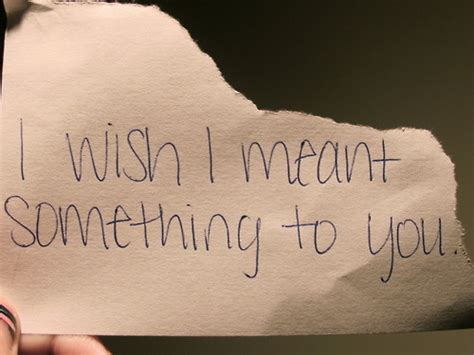 I wish I meant
something to you.